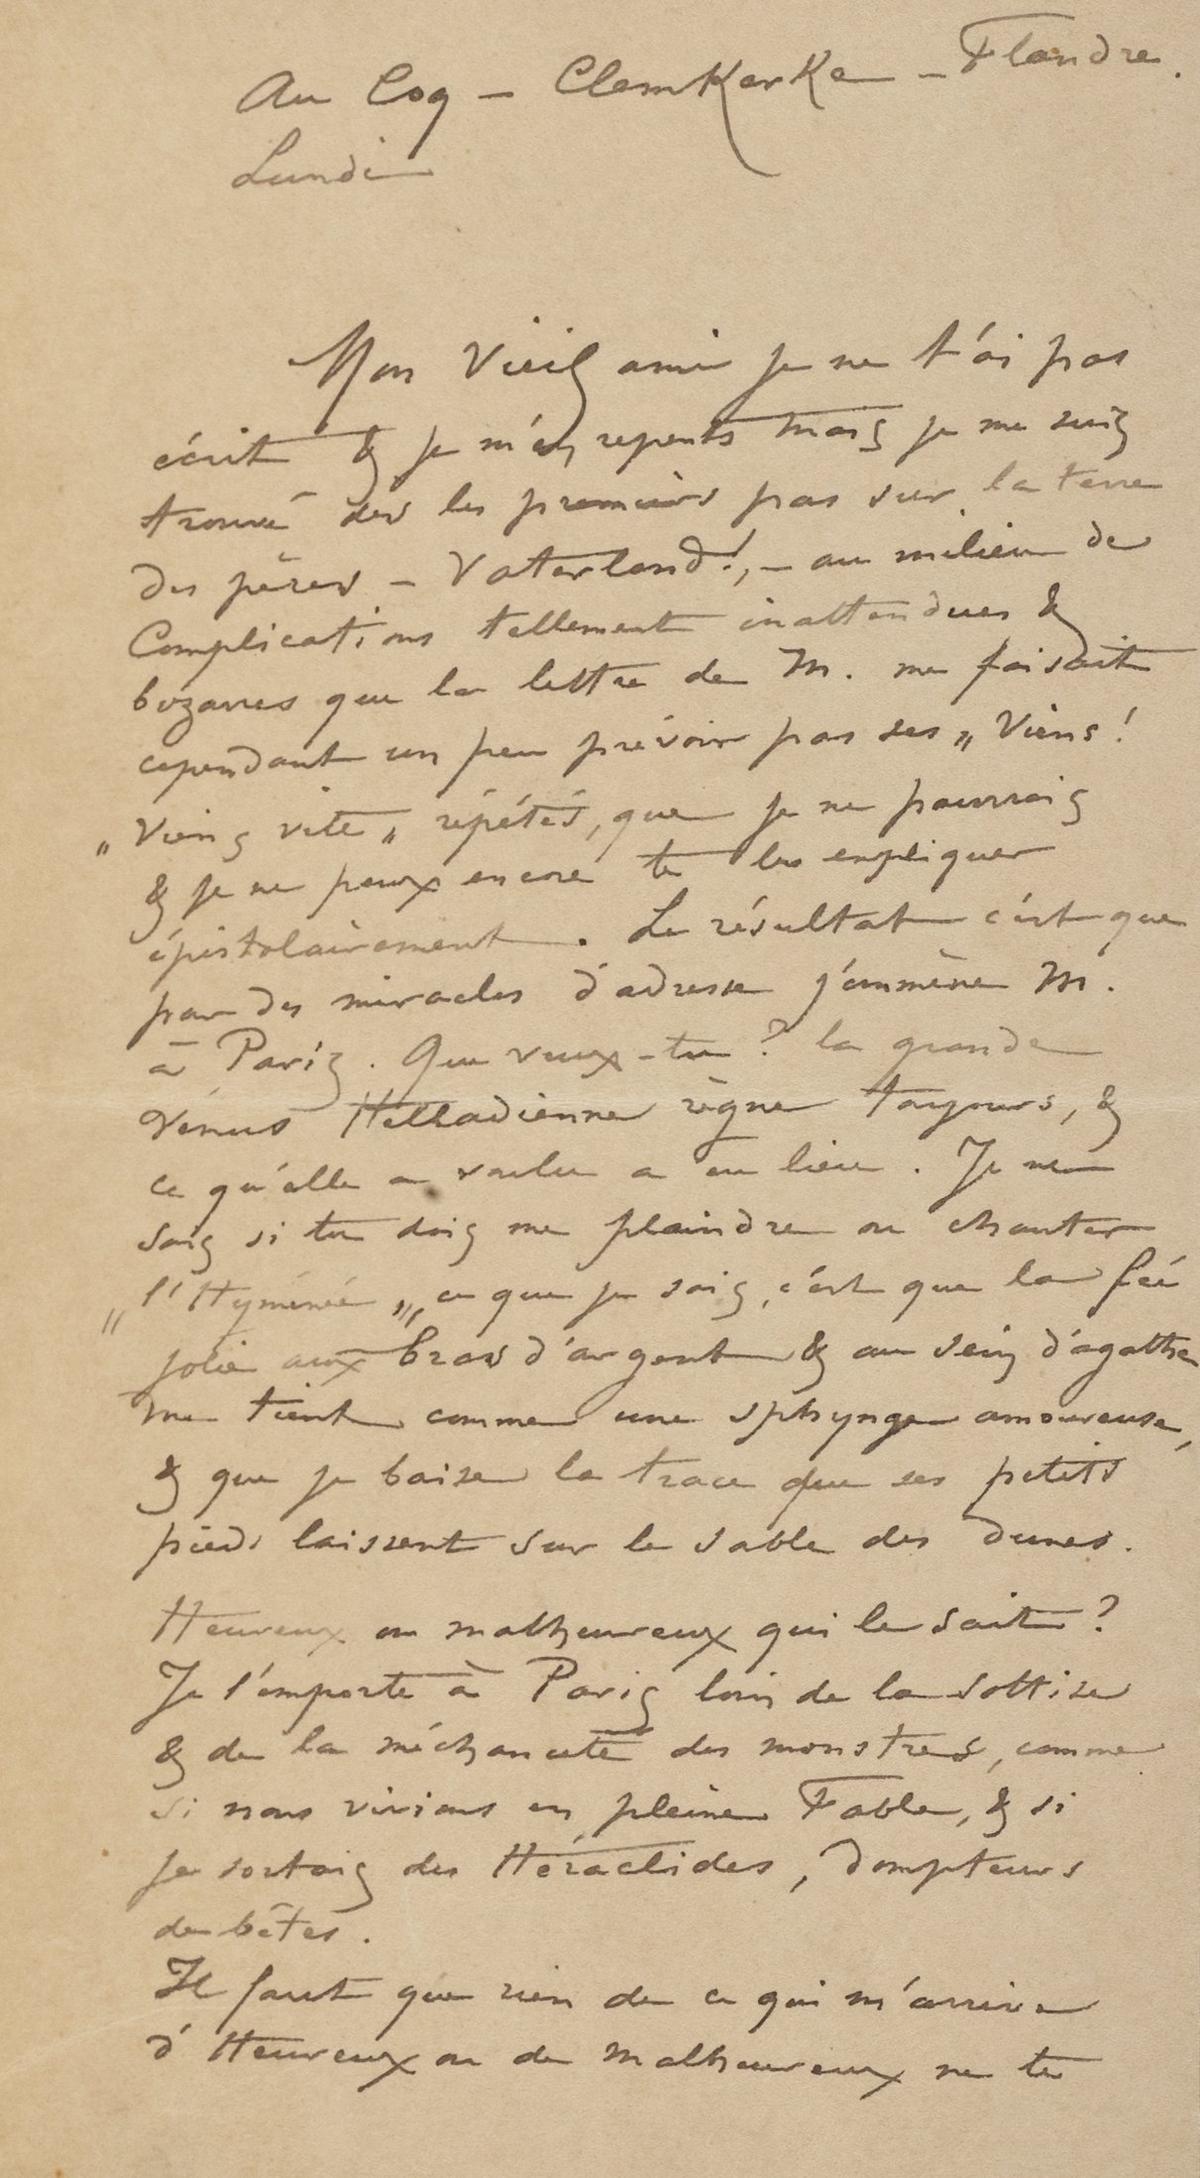 Au Coq – Clemkerke – Flandre.
Lundi
Mon Vieil ami je ne t'ai pas
écrit & je m'en repents mais je me suis
trouvé dès les premiers pas sur la terre
des pères – Vaterland!, – au milieu de
Complications tellement inattendues &
bizarres que la lettre de M. me faisait
cependant un peu prévoir par ses „ Viens !
„ Viens vite „ répétés, que je ne pourrais
& je ne peux encore te les expliquer
épistolairement. Le résultat c'est que
par des miracles d'adresse j'emmène M.
à Paris. Que veux-tu ? la grande
Vénus Helladienne règne toujours, &
ce qu'elle a voulu a eu lieu. Je ne
sais si tu dois me plaindre ou chanter
„ l'Hyménée „, ce que je sais, c'est que la fée
jolie aux bras d'argent & au sein d'agathe
me tient comme une sphynge amoureuse,
& que je baise la trace que ses petits
pieds laissent sur le sable des dunes.
Heureux ou malheureux qui le sait ?
Je l'emporte à Paris loin de la sottise
& de la méchanceté des monstres, comme
si nous vivions en pleine Fable, & si
je sortais des Héraclides, dompteurs
de bêtes.
Il faut que rien de ce qui m'arrive
d'Heureux ou de malheureux ne te